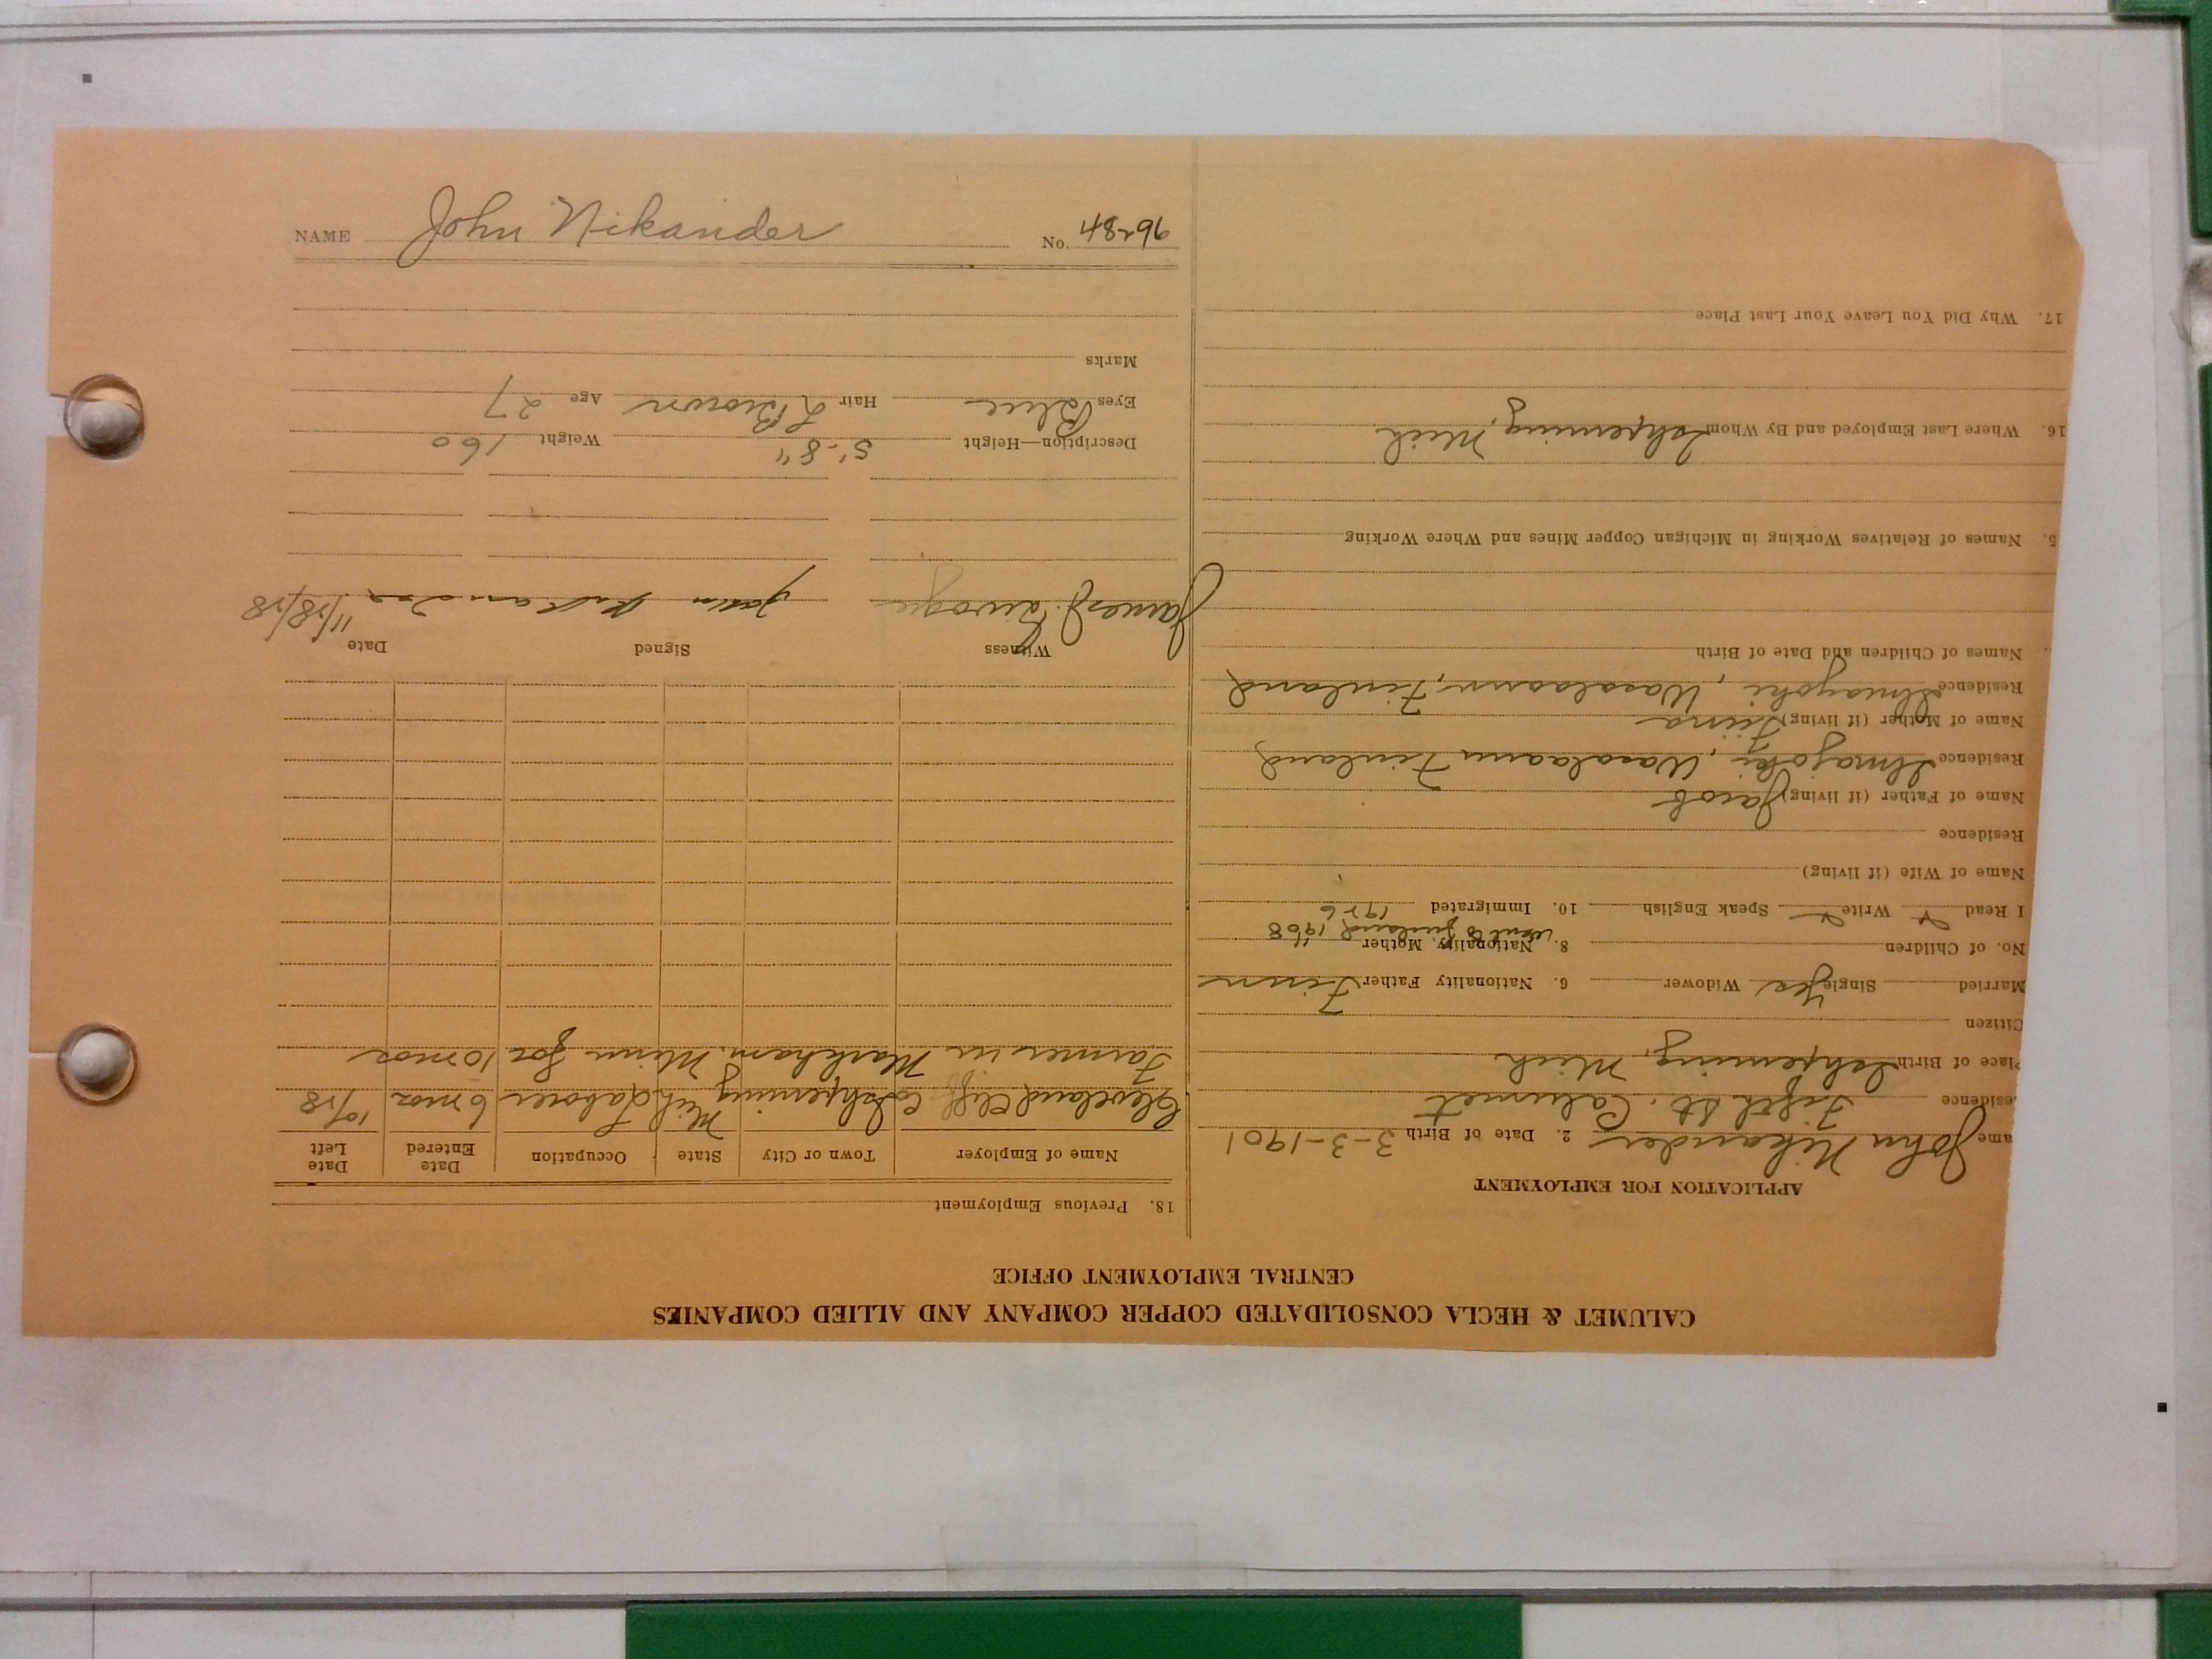 NAME John Nikander No. 48296
CALUMET & HECLA CONSOLIDATED COPPER COMPANY AND ALLIED COMPANIES
CENTRAL EMPLOYMENT OFFICE
APPLICATION FOR EMPLOYMENT
ame John Nikander 2. Date of Birth 3-3-1901
esidence Fifth St. Calumet
Place of Birth Ishpeming, Mich
Citizen
Married Single Yes Widower 6. Nationality Father Finn
No. of Children 8. Nationality, Mother "
went to Finland 1908
I Read Write Speak English 10. Immigrated 1926
Name of Wife (if living)
Residence
Name of Father (if living) Jacob
Residence Ilmajoki, Waasalaani Finland
Name of Mother (if living) Fiina
Residence Ilmajoki, Finland
Names of Children and Date of Birth
5. Names of Relatives Working in Michigan Copper Mines and Where Working
16. Where Last Employed and By Whom Ishpeming, Mich
17. Why Did You Leave Your Last Place
18. Previous Employment
Name of Employer Town or City State Occupation Date Entered Date Left
Cleveland Cliff Co Ishpeming Mich Laborer 6 mos 10/28
Farmer in Markham, Minn for 10 mos
Witness Signed Date
James 11/28/28
Description—Height 5'-8" Weight 160
Eyes Blue Hair L Brown Age 27
Marks